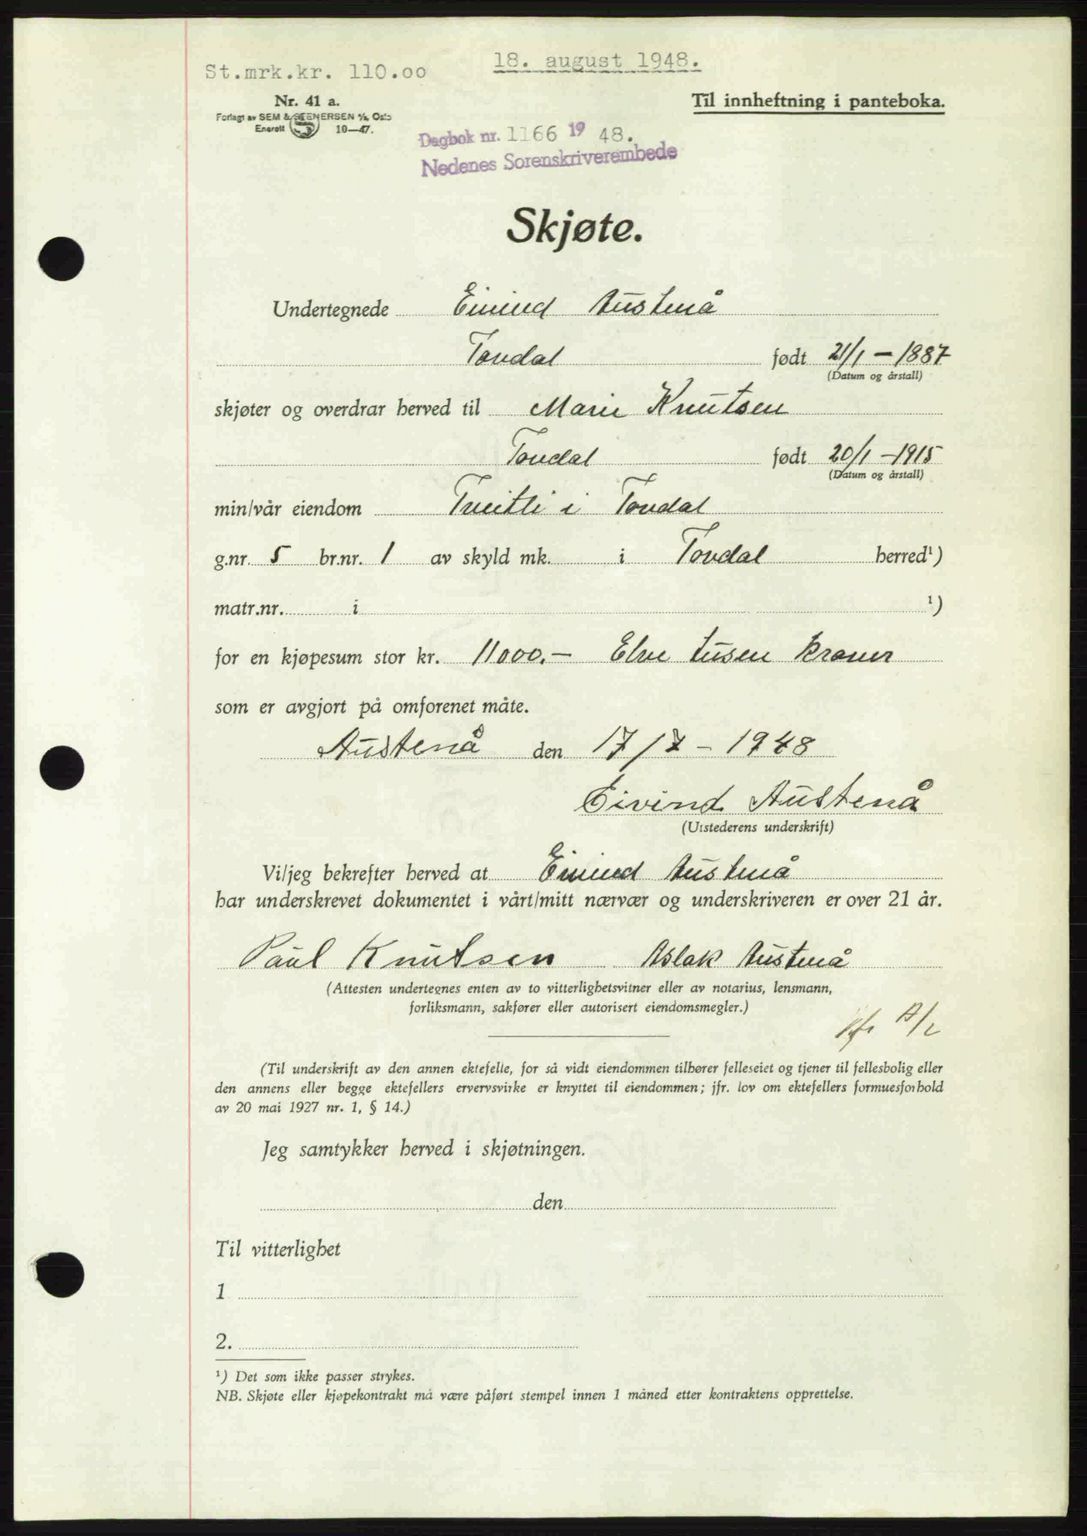 St.mrk.kr. 110.00
18. august 1948.
Nr. 41 a.
Forlagt av SEM & STENERSEN A/S, Oslo
Enerett 10—47.
Til innheftning i panteboka.
Dagbok nr. 1166 19 48.
Nedenes Sorenskriverembede
Skjøte.
Undertegnede Eivind Austenå
Tovdal født 21/1 - 1887
(Datum og årstall)
skjøter og overdrar herved til Marie Knutsen
Tovdal født 20/1 - 1915
(Datum og årstall)
min/vår eiendom Tveitli i Tovdal
g.nr. 5 br.nr. 1 av skyld mk. i Tovdal herred¹)
matr.nr. i ¹)
for en kjøpesum stor kr. 11000.- Elve tusen kroner
som er avgjort på omforenet måte.
Austenå den 17/7 - 1948
Eivind Austenå
(Utstederens underskrift)
Vi/jeg bekrefter herved at Eivind Austenå
har underskrevet dokumentet i vårt/mitt nærvær og underskriveren er over 21 år.
Paul Knutsen Aslak Austenå
(Attesten undertegnes enten av to vitterlighetsvitner eller av notarius, lensmann,
forliksmann, sakfører eller autorisert eiendomsmegler.)
(Til underskrift av den annen ektefelle, for så vidt eiendommen tilhører felleseiet og tjener til fellesbolig eller
den annens eller begge ektefellers ervervsvirke er knyttet til eiendommen; jfr. lov om ektefellers formuesforhold
av 20 mai 1927 nr. 1, § 14.)
Jeg samtykker herved i skjøtningen.
den
Til vitterlighet
1
2.
¹) Det som ikke passer strykes.
NB. Skjøte eller kjøpekontrakt må være påført stempel innen 1 måned etter kontraktens opprettelse.